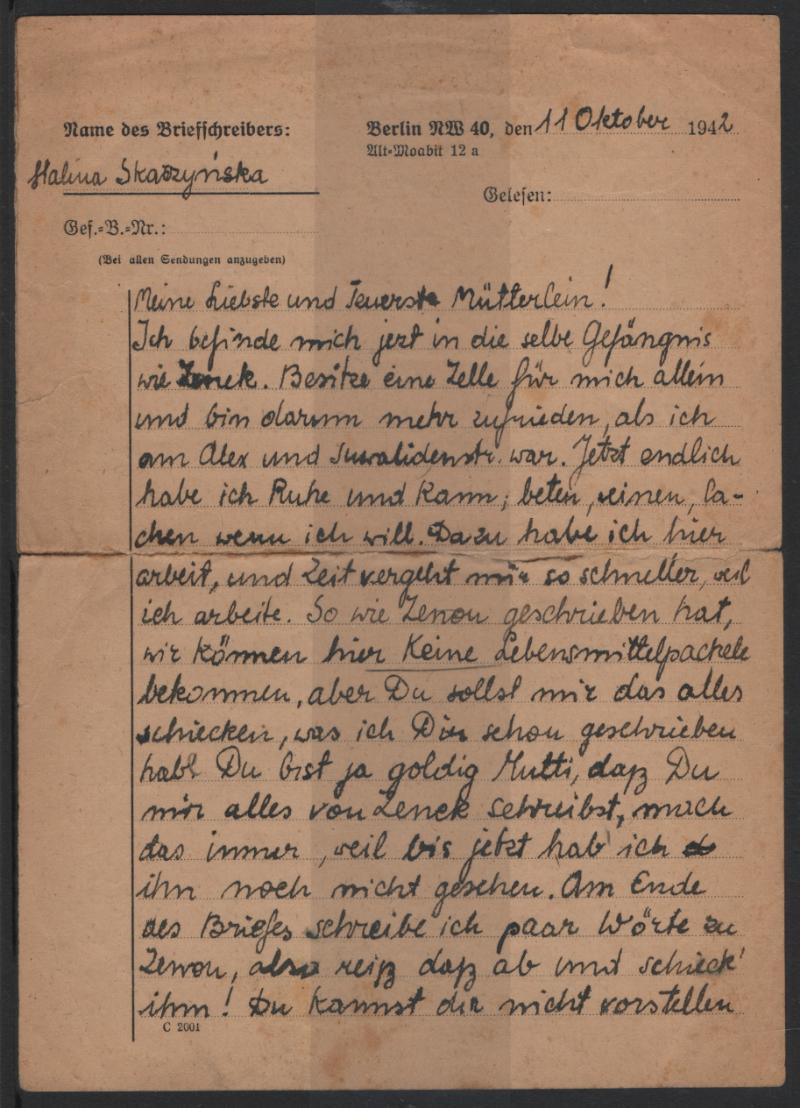 Name des Briefschreibers:
Halina Skaszyńska
Berlin NW 40, den 11 Oktober 1942
Alt-Moabit 12 a
Gelesen:
Gef.-B.-Nr.:
(Bei allen Sendungen anzugeben)
Meine Liebste und Teuerste Mütterlein!
Ich befinde mich jezt in die selbe Gefängnis
wie Zenek. Besitze eine Zelle für mich allein
und bin darum mehr zufrieden, als ich
am Alex und Invalidenstr. war. Jetzt endlich
habe ich Ruhe und kann, beten, weinen, la-
chen wenn ich will. Dazu habe ich hier
arbeit, und Zeit vergeht mir so schneller, weil
ich arbeite. So wie Zenon geschrieben hat,
wir können hier Keine Lebensmittelpackele
bekommen, aber Du sollst mir das alles
schiecken, was ich Dir schon geschrieben
hab! Du bist ja goldig Mutti, daß Du
mir alles von Zenek schreibst, mach
das immer, weil bis jetzt hab' ich
ihn noch nicht gesehen. Am Ende
des Briefes schreibe ich paar Wörte zu
Zenon, also reiß daß ab und schieck'
ihm! Du kannst dir nicht vorstellen
C 2001